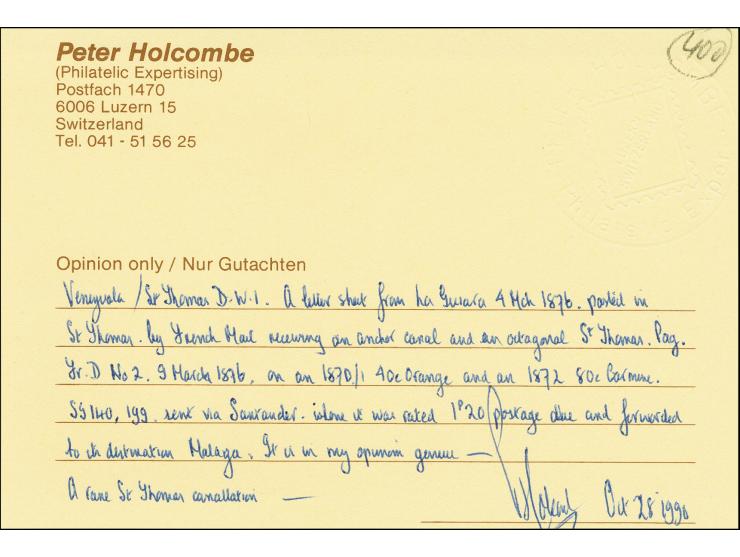 400
Peter Holcombe
(Philatelic Expertising)
Postfach 1470
6006 Luzern 15
Switzerland
Tel. 041 - 51 56 25
Opinion only / Nur Gutachten
Venezuela / St Thomas D.W.I. A letter sheet from La Guiara 4 Mch 1876. posted in
St Thomas. by French Mail receiving an anchor cancel and an octagonal St Thomas. Paq.
Fr. D No 2. 9 March 1876, on an 1870/1 40c Orange and an 1872 80c Carmine.
SG 140, 199. sent via Santander. where it was rated 1P20 postage due and forwarded
to its destination Malaga. It is in my opinion genuine —
A rare St Thomas cancellation —
Oct 28 1990